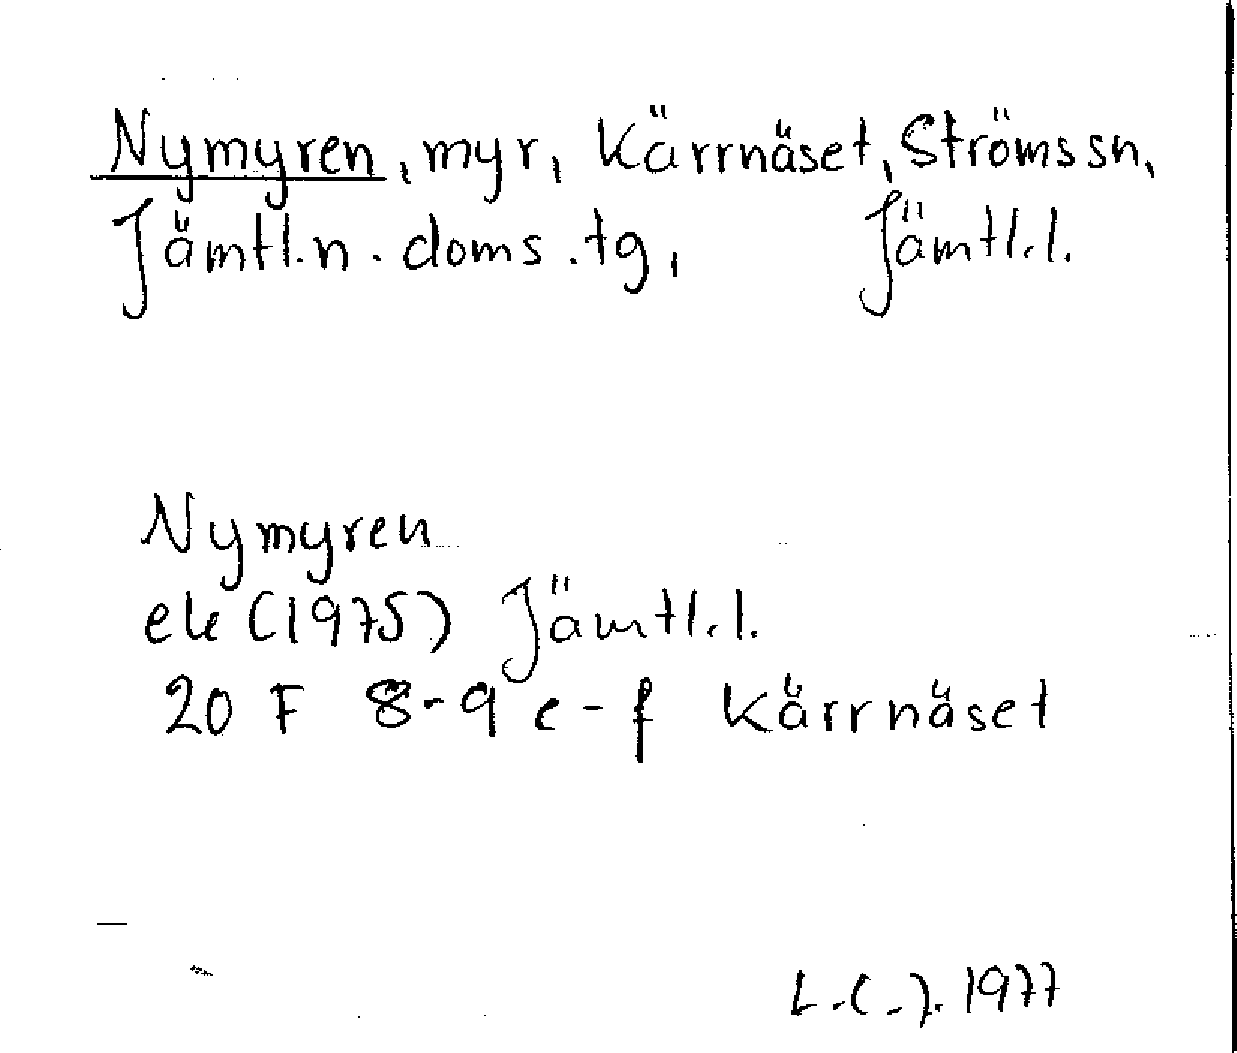 Nymyren, myr, Kärrnäset, Ströms sn,
Jämtl.n. doms.tg, Jämtl.l.
Nymyren
ek (1975) Jämtl.l.
20 F 8-9 e-f Kärrnäset
L.C.J. 1977